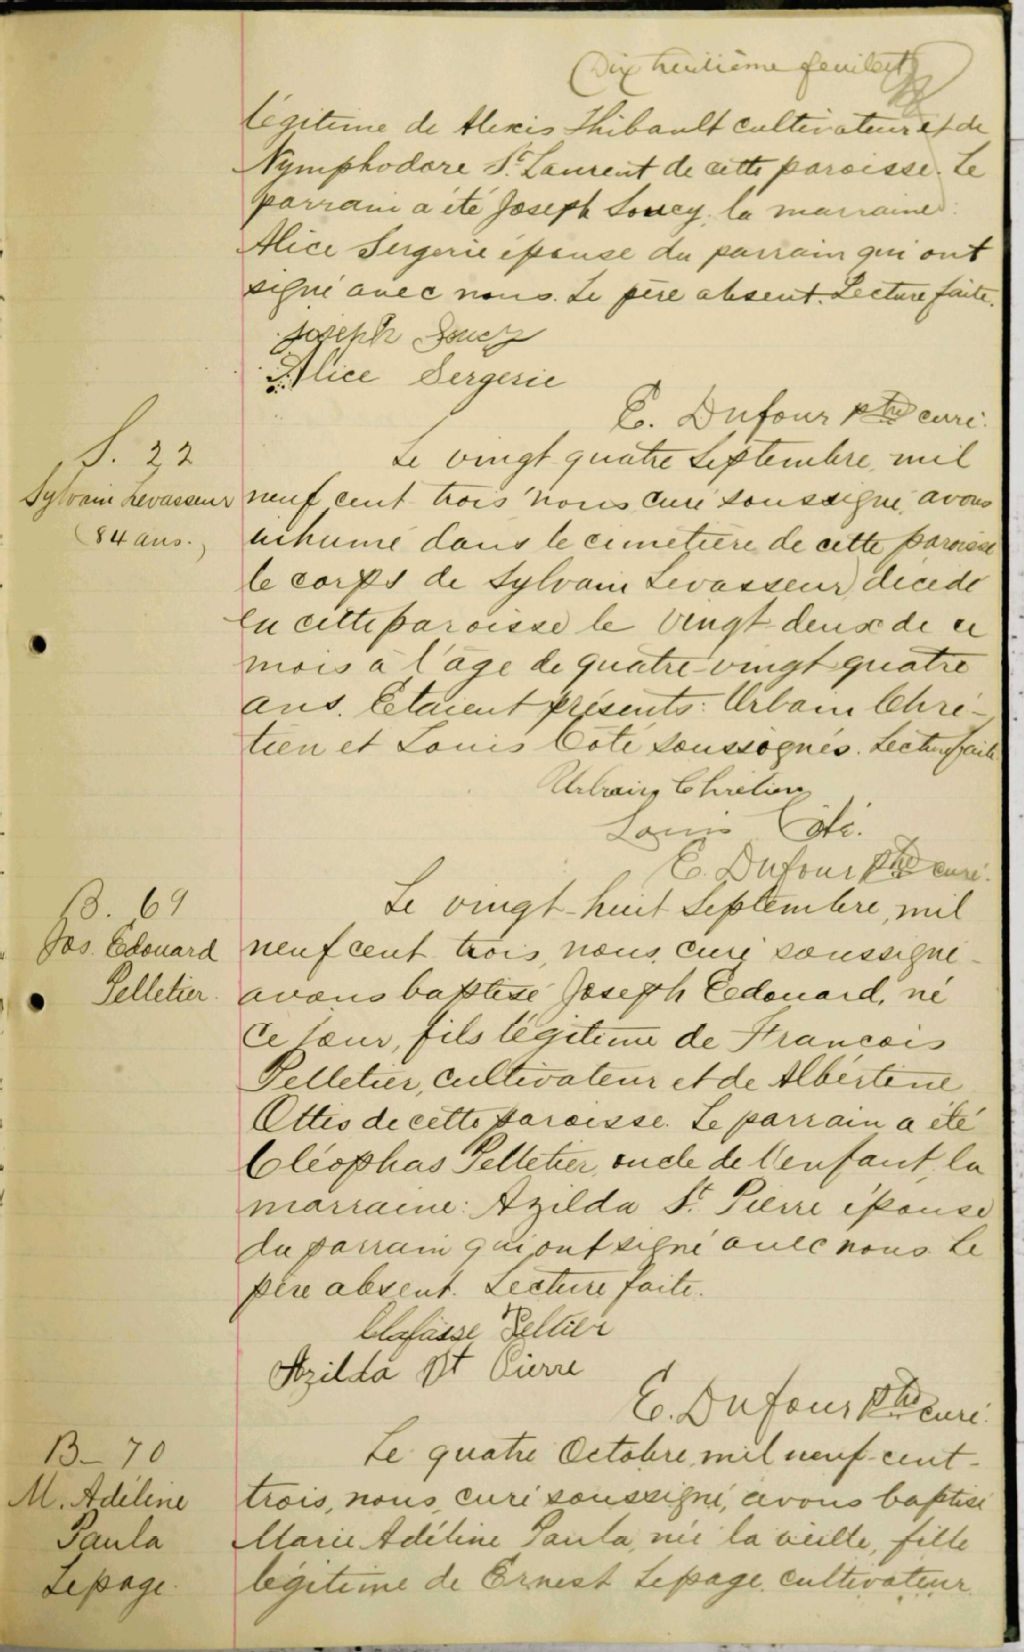 Dix huitième feuillet
légitime de Alexis Thibault cultivateur et de
Nymphodore St Laurent de cette paroisse. Le
parrain a été Joseph Soucy, la marraine:
Alice Sergerie épouse du parrain qui ont
signé avec nous. Le père absent. Lecture faite.
Joseph Soucy
Alice Sergerie
E. Dufour ptre curé.
S. 22
Sylvain Levasseur
(84 ans.)
Le vingt quatre Septembre, mil
neuf cent trois nous curé soussigné, avons
inhumé dans le cimetière de cette paroisse
le corps de Sylvain Levasseur, décédé
en cette paroisse le vingt-deux de ce
mois à l'âge de quatre-vingt quatre
ans. Etaient présents: Urbain Chré-
tien et Louis Coté soussignés. Lecture faite
Urbain Chrétien
Louis Côté.
E. Dufour ptre curé.
B. 69
Jos. Edouard
Pelletier.
Le vingt-huit Septembre, mil
neuf cent trois, nous, curé soussigné
avons baptisé Joseph Edouard, né
ce jour, fils légitime de Francois
Pelletier, cultivateur et de Albértine
Ottis de cette paroisse. Le parrain a été
Cléophas Pelletier, oncle de l'enfant, la
marraine: Azilda St. Pierre épouse
du parrain qui ont signé avec nous. Le
père absent. Lecture faite.
Peltier
Azilda St Pierre
E. Dufour ptre curé.
B- 70
M. Adéline
Paula
Lepage.
Le quatre Octobre, mil neuf-cent-
trois, nous, curé soussigné, avons baptisé
Marie Adéline Paula, née la veille, fille
légitime de Ernest Lepage, cultivateur